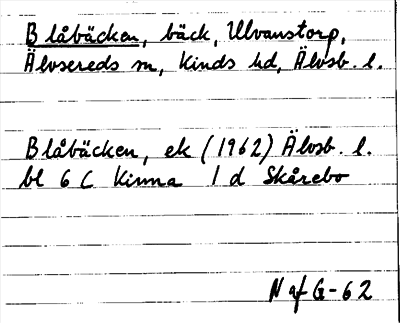 Blåbäcken, bäck, Ulvanstorp,
Älvsereds sn, Kinds hd, Älvsb. l.
Blåbäcken, ek (1962) Älvsb. l.
bl 6 C Kinna 1 d Skårebo
N af G-62